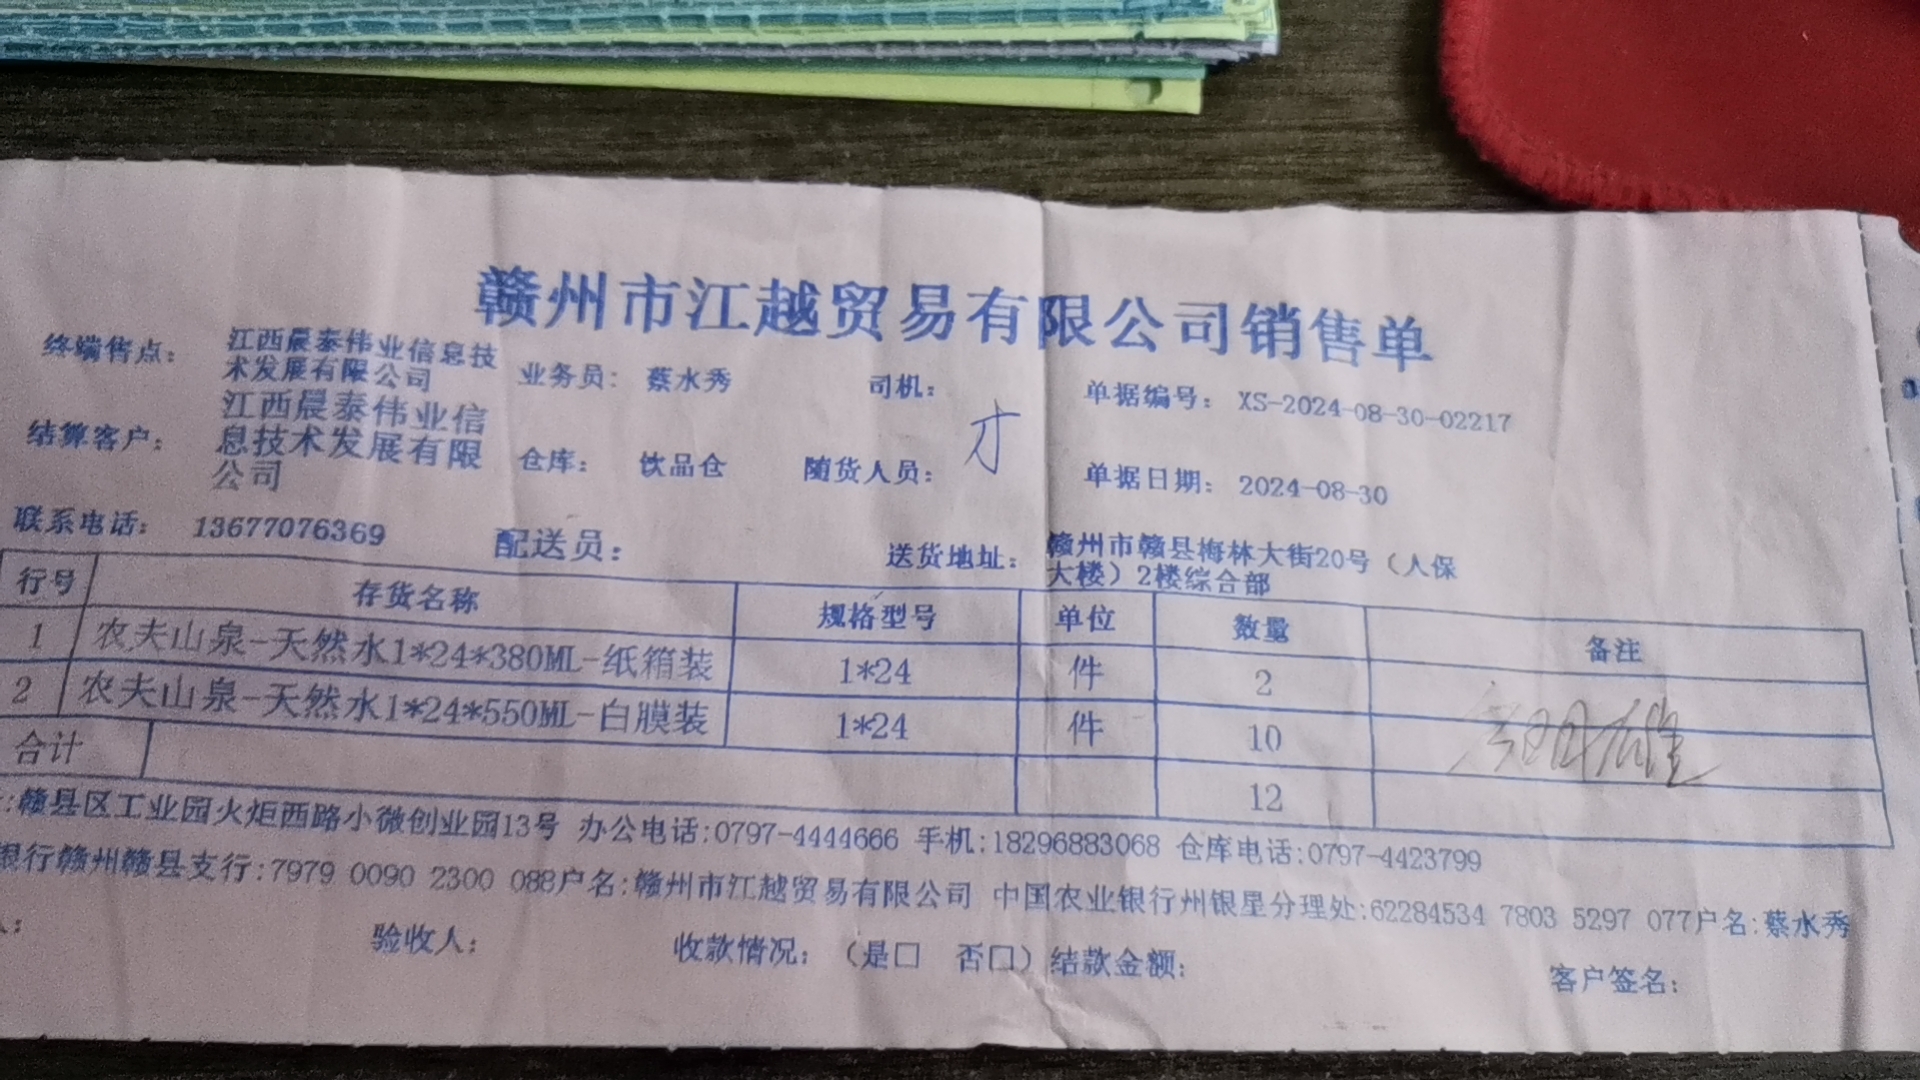 赣州市江越贸易有限公司销售单
终端售点： 江西晨泰伟业信息技术发展有限公司 业务员： 蔡水秀 司机： 单据编号： XS-2024-08-30-02217
结算客户： 江西晨泰伟业信息技术发展有限公司 仓库： 饮品仓 随货人员： 单据日期： 2024-08-30
联系电话： 13677076369 配送员： 送货地址： 赣州市赣县梅林大街20号（人保大楼）2楼综合部
行号 存货名称 规格型号 单位 数量 备注
1 农夫山泉-天然水1*24*380ML-纸箱装 1*24 件 2
2 农夫山泉-天然水1*24*550ML-白膜装 1*24 件 10
合计 12
:赣县区工业园火炬西路小微创业园13号 办公电话:0797-4444666 手机:18296883068 仓库电话:0797-4423799
银行赣州赣县支行:7979 0090 2300 088户名:赣州市江越贸易有限公司 中国农业银行州银星分理处:62284534 7803 5297 077户名:蔡水秀
验收人： 收款情况：（是□ 否□）结款金额： 客户签名：